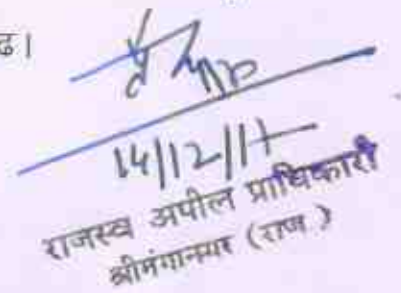 ढ।
14/12/17
राजस्व अपील प्राधिकारी
श्रीगंगानगर (राज.)